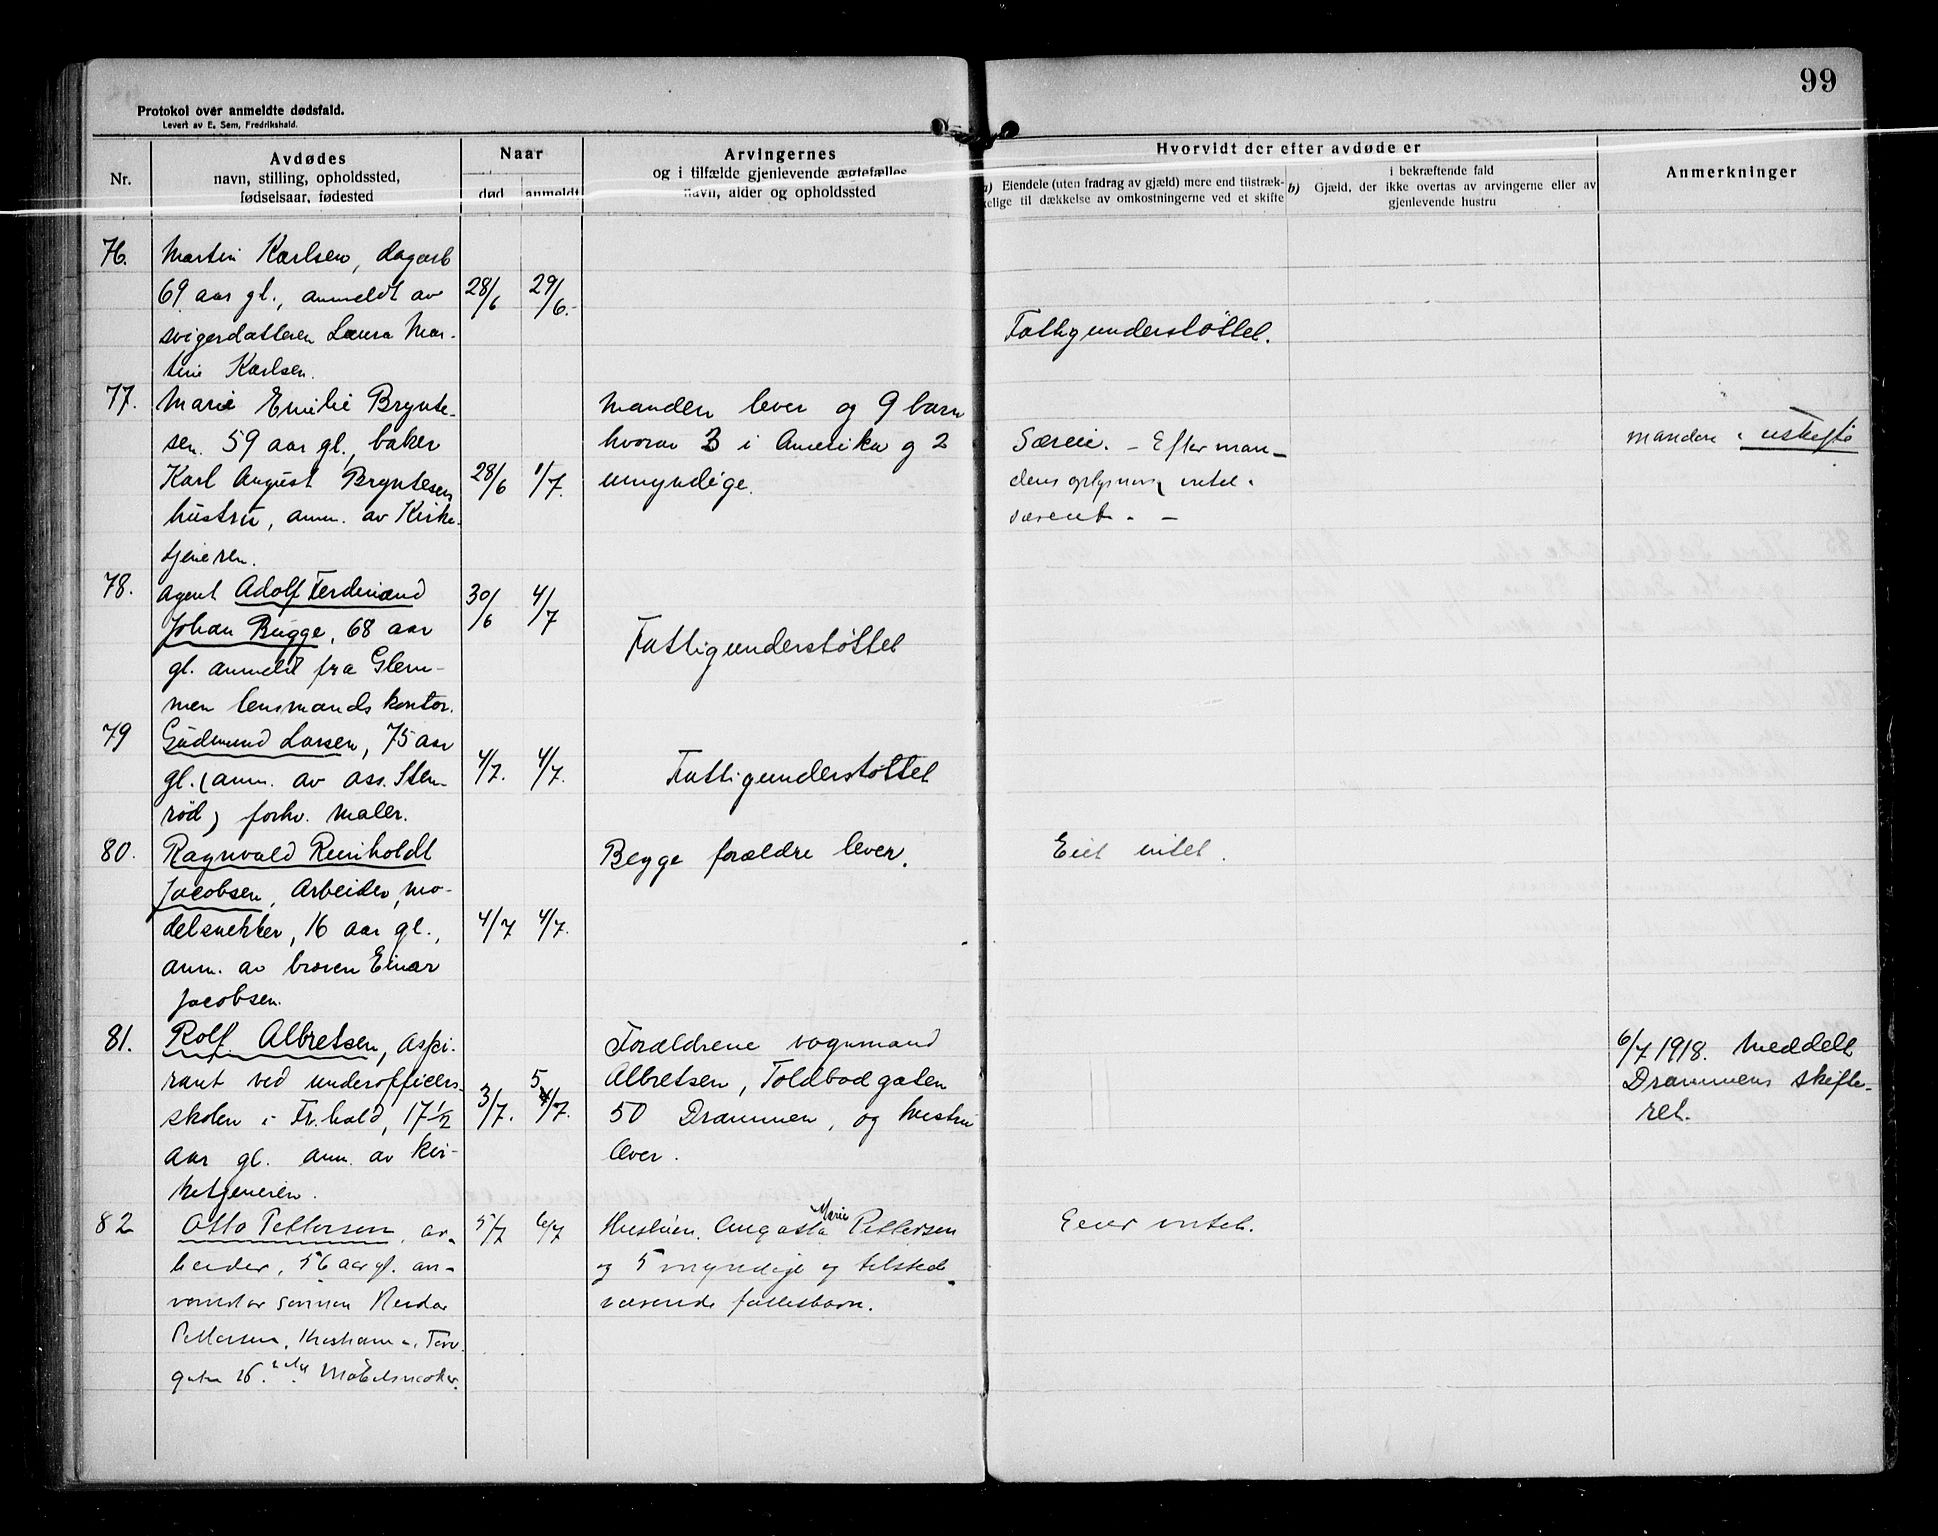 99
Protokol over anmeldte dødsfald.
Levert av E. Sem, Fredrikshald.
Nr.
Avdødes
navn, stilling, opholdssted,
fødselsaar, fødested
Naar
død
anmeldt
Arvingernes
og i tilfælde gjenlevende ægtefælles
navn, alder og opholdssted
Hvorvidt der efter avdøde er
a) Eiendele (uten fradrag av gjæld) mere end tilstræk-
kelige til dækkelse av omkostningerne ved et skifte
b) Gjæld, der
i bekræftende fald
ikke overtas av arvingerne eller av
gjenlevende hustru
Anmerkninger
76.
Martin Karlsen, dagarb
69 aar gl., anmeldt av
svigerdatteren Laura Mar-
tine Karlsen.
28/6
29/6.
Fattigunderstøttet.
77.
Marie Emilie Brynte-
sen. 59 aar gl., baker
Karl August Bryntesen
hustru, anm. av Kirke-
tjeneren.
28/6
1/7.
Manden lever og 9 barn
hvorav 3 i Amerika og 2
umyndige.
Særeie. – Efter man-
dens oplysning intet
særeie. –
manden i uskifte
78.
Agent Adolf Ferdinand
Johan Bugge, 68 aar
gl. anmeldt fra Glem-
men lensmandskontor.
30/6
4/7
Fattigunderstøttet
79
Gudmund Larsen, 75 aar
gl. (anm. av ass. Sten-
rød) forhv. maler.
4/7.
4/7.
Fattigunderstøttet
80.
Ragnvald Reinholdt
Jacobsen, Arbeider, mo-
delsnekker, 16 aar gl.,
anm. av broren Einar
Jacobsen.
4/7
4/7.
Begge forældre lever.
Eiet intet.
81.
Rolf Albretsen, aspi-
rant ved underofficers-
skolen i Fr.hald, 17 1/2
aar gl. anm. av kir-
ketjeneren.
3/7.
5/7.
Forældrene vognmand
Albretsen, Toldbodgaten
50 Drammen, og hustru
lever.
6/7 1918. Meddelt
Drammens skifte-
ret.
82
Otto Pettersen, ar-
beider, 56 aar gl. an-
av sønnen Reidar
Pettersen, Torv-
gaten 26
5/7
6/7
Hustruen Augusta Marie Pettersen
og 5 myndige og tilsted-
værende fællesbarn.
Eier intet.